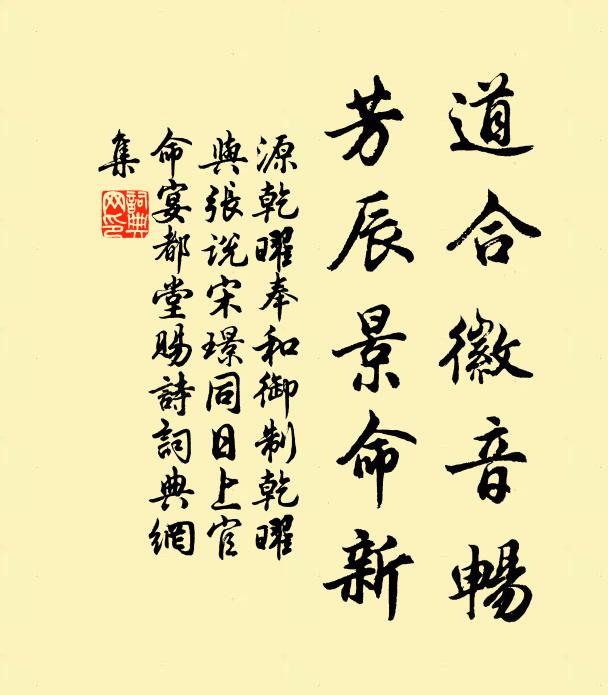 道合徽音暢
芳辰景命新
源乾曜奉和御制乾曜
與張說宋璟同日上官
命宴都堂賜詩詞典網
集
詞典網印